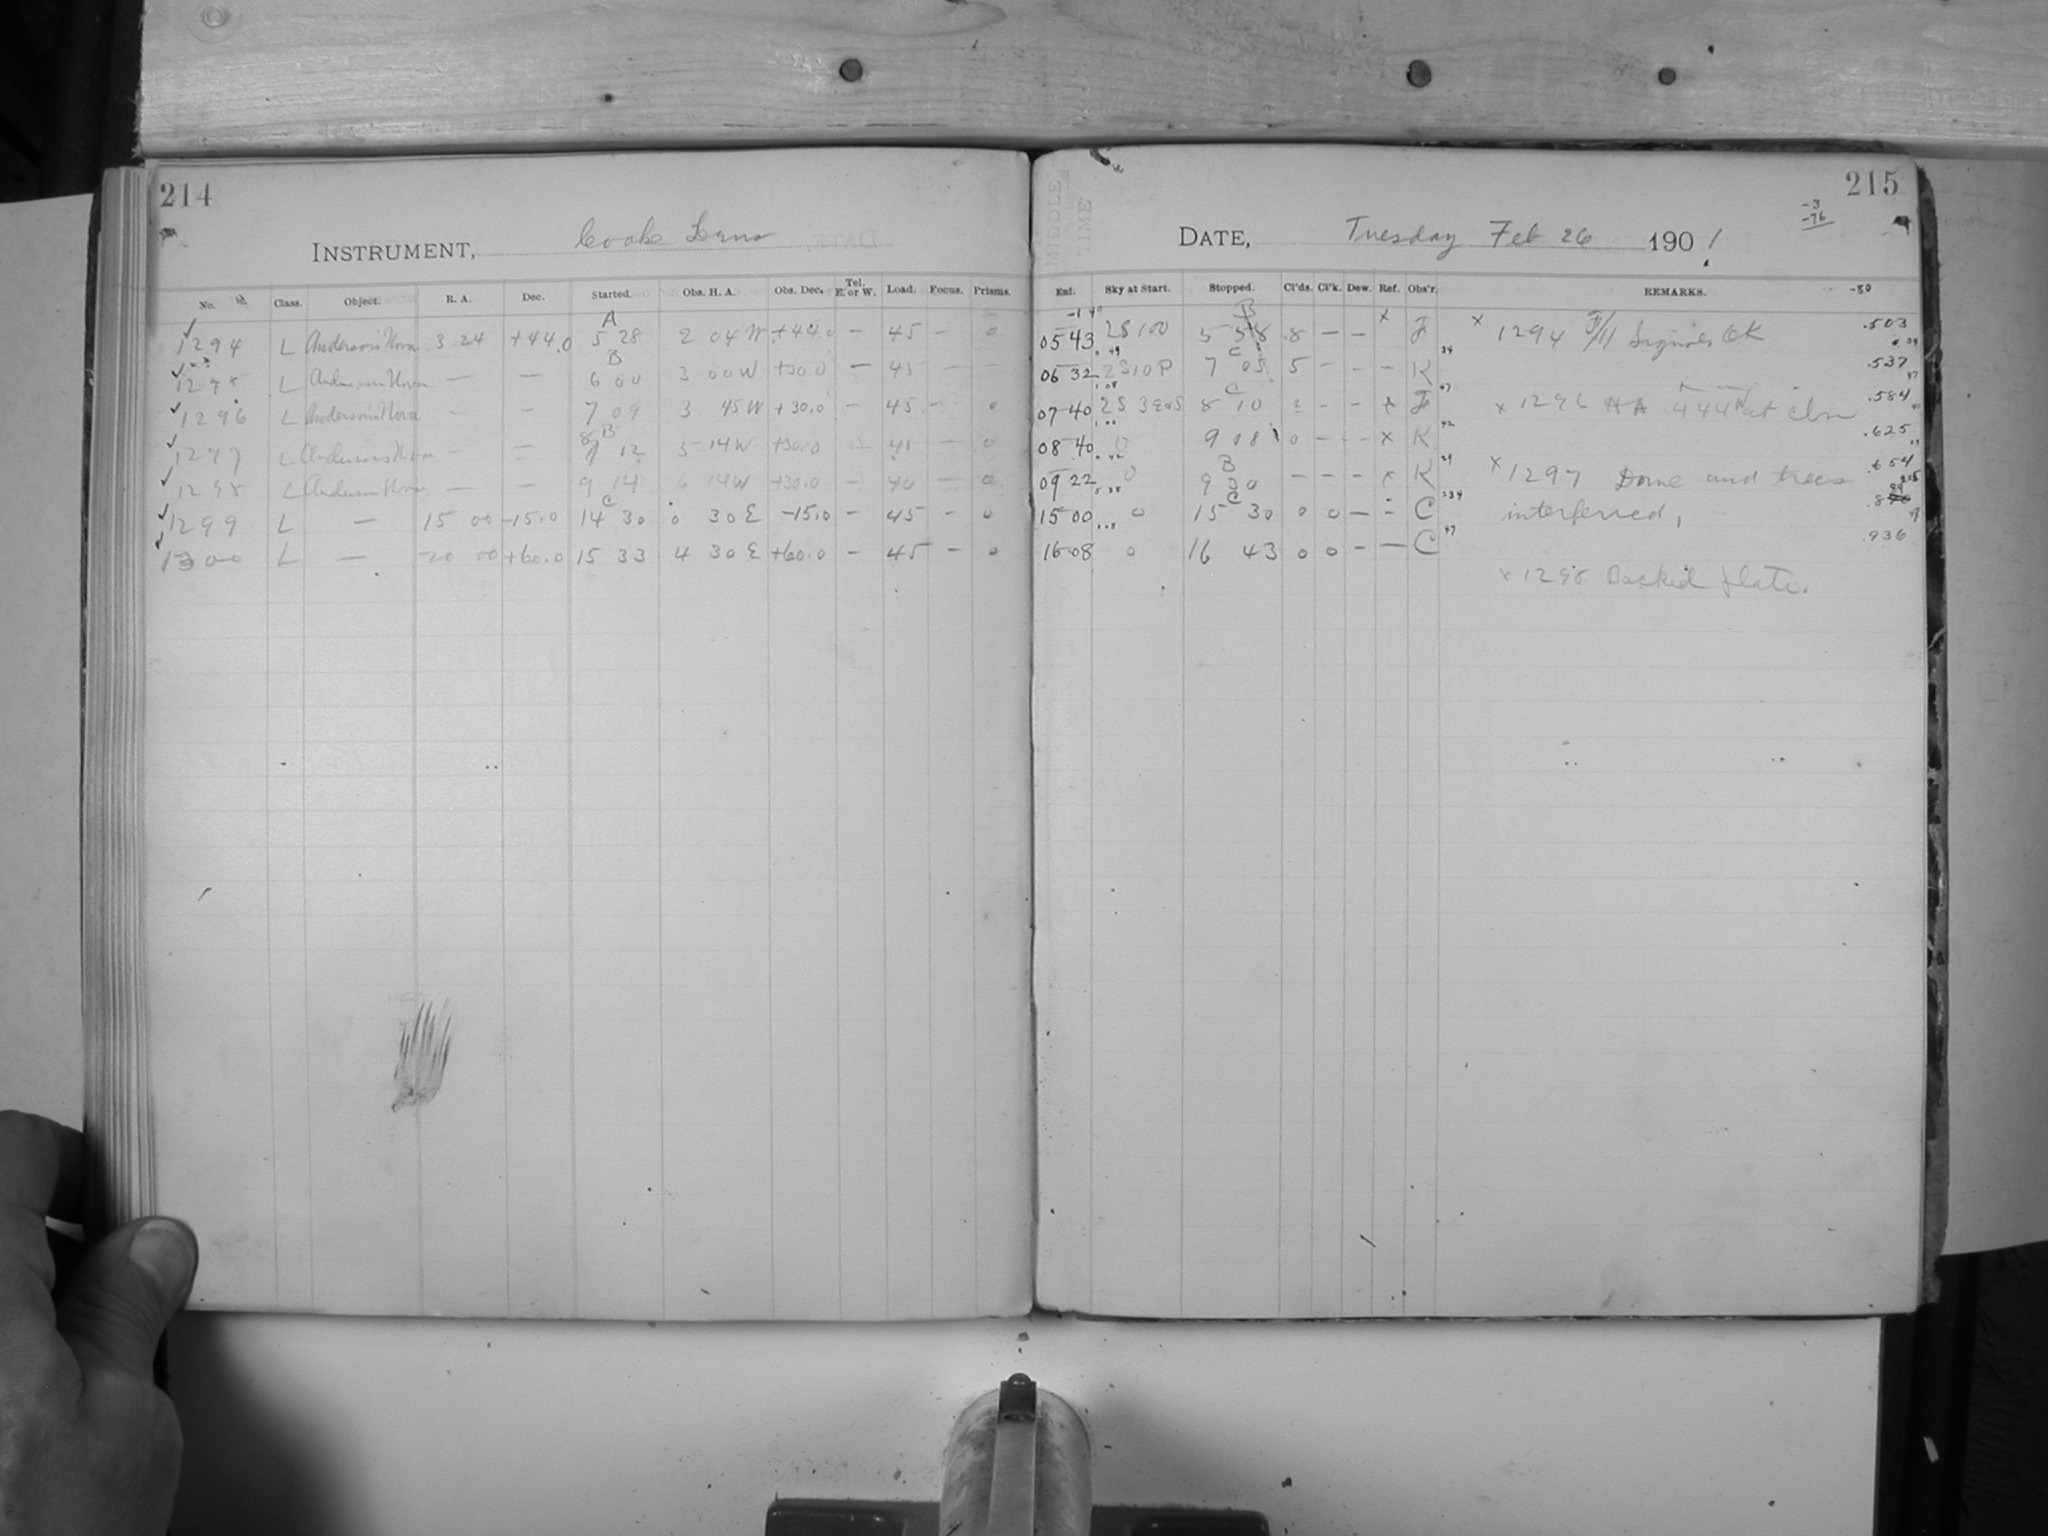 214
INSTRUMENT, Cooke Lens
No. Class. Object. R. A. Dec. Started. Obs. H. A. Obs. Dec. Tel. E. or W. Load. Focus. Prisms.
A
1294 L Anderson's Nova 3 24 +44.0 5 28 2 04 W +44.0 — 45 — 0
B
L Anderson's Nova — — 6 00 3 00 W +30.0 — 45 — —
1296 L Anderson's Nova — — 7 09 3 45 W +30.0 — 45 — 0
B
1297 L Anderson's Nova — — 12 5 14 W +30.0 — 45 — 0
1298 L Anderson Nova — — 9 14 6 14 W +30.0 — 40 — 0
C
1299 L — 15 00 -15.0 14 30 0 30 E -15.0 — 45 — 0
1300 L — 20 00 +60.0 15 33 4 30 E +60.0 — 45 — 0
215
-3
-76
DATE, Tuesday Feb 26 1901
MIDDLE TIME
Ent. Sky at Start. Stopped. Cl'ds. Cl'k. Dew. Ref. Obs'r. REMARKS. -50
B
05 43 2S 100 5 58 8 — — x F x 1294 F/11 Signals OK .503
34
C
06 32 2S10P 7 05 5 — — — K .537
47
C
07 40 2S 8 10 — — x F x 1296 HA 444 W at close .584
42
08 40 0 9 08 0 — — x K .625
29
B
09 22 0 9 30 — — — x K x 1297 Dome and trees .654
234
C
15 00 0 15 30 0 0 — C interferred,
47
16 08 0 16 43 0 0 — — C .936
x 1298 Backed plate.